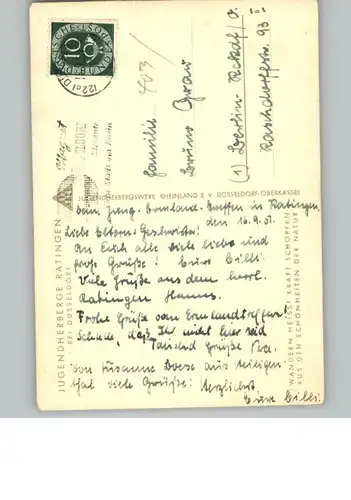 DEUTSCHE BUNDESPOST
10
(22a) DÜSSELDORF
403/
Familie
Bruno Grau
(1) Berlin-Rekdf/O.
Raschdorffstr. 93
JUGENDHERBERGSWERK RHEINLAND E. V. DÜSSELDORF-OBERKASSEL
JUGENDHERBERGE RATINGEN
BEI DÜSSELDORF
WANDERN HEISST KRAFT SCHÖPFEN
AUS DEN SCHÖNHEITEN DER NATUR
Beim Jung-Ermland-Treffen in Ratingen,
den 16.9.51.
Liebe Eltern u. Geschwister!
An Euch alle viele liebe und
frohe Grüße! Eure Cilli.
Viele Grüße aus dem
Ratingen Hanns.
Frohe Grüße vom Ermlandtreffen!
Schade, daß Ihr nicht hier seid
Tausend Grüße
Von Susanne Boese aus Heiligen-
thal viele Grüße! Herzlichst
Eure Cilli.